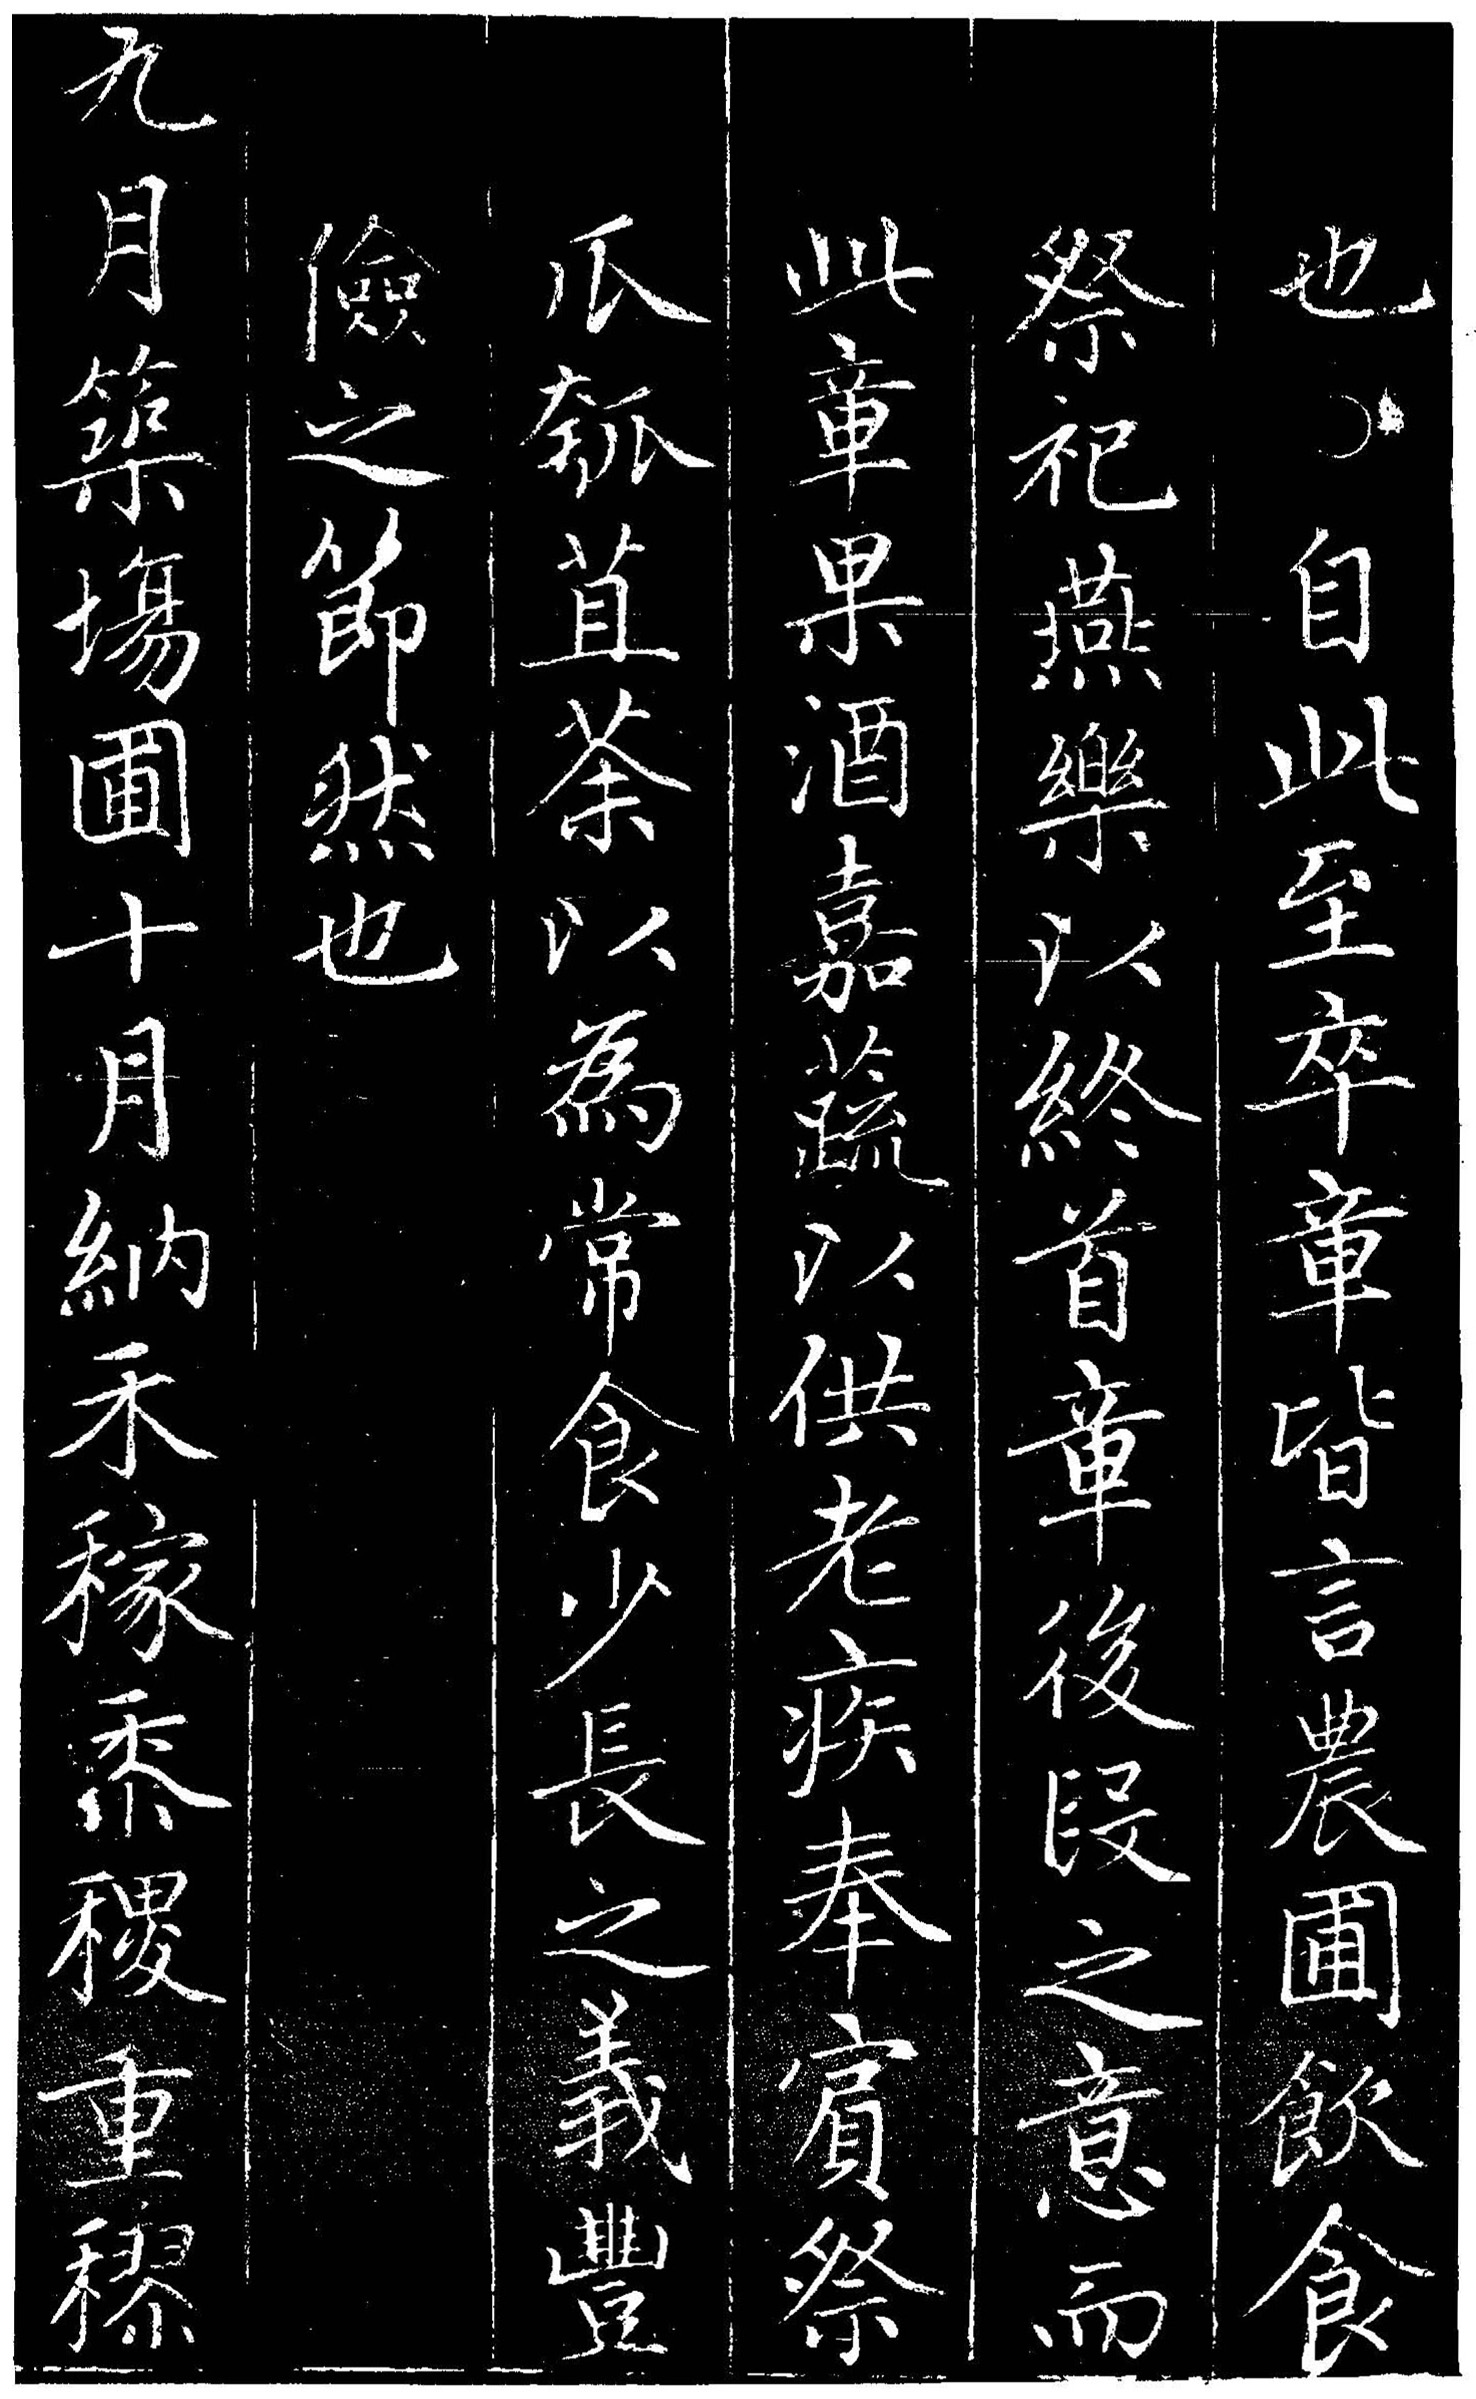 也〇自此至卒章皆言農圃飲食
祭祀燕樂以終首章後段之意而
此章果酒嘉蔬以供老疾奉賓祭
瓜瓠苴荼以為常食少長之義豐
儉之節然也
九月築場圃十月納禾稼黍稷重穋